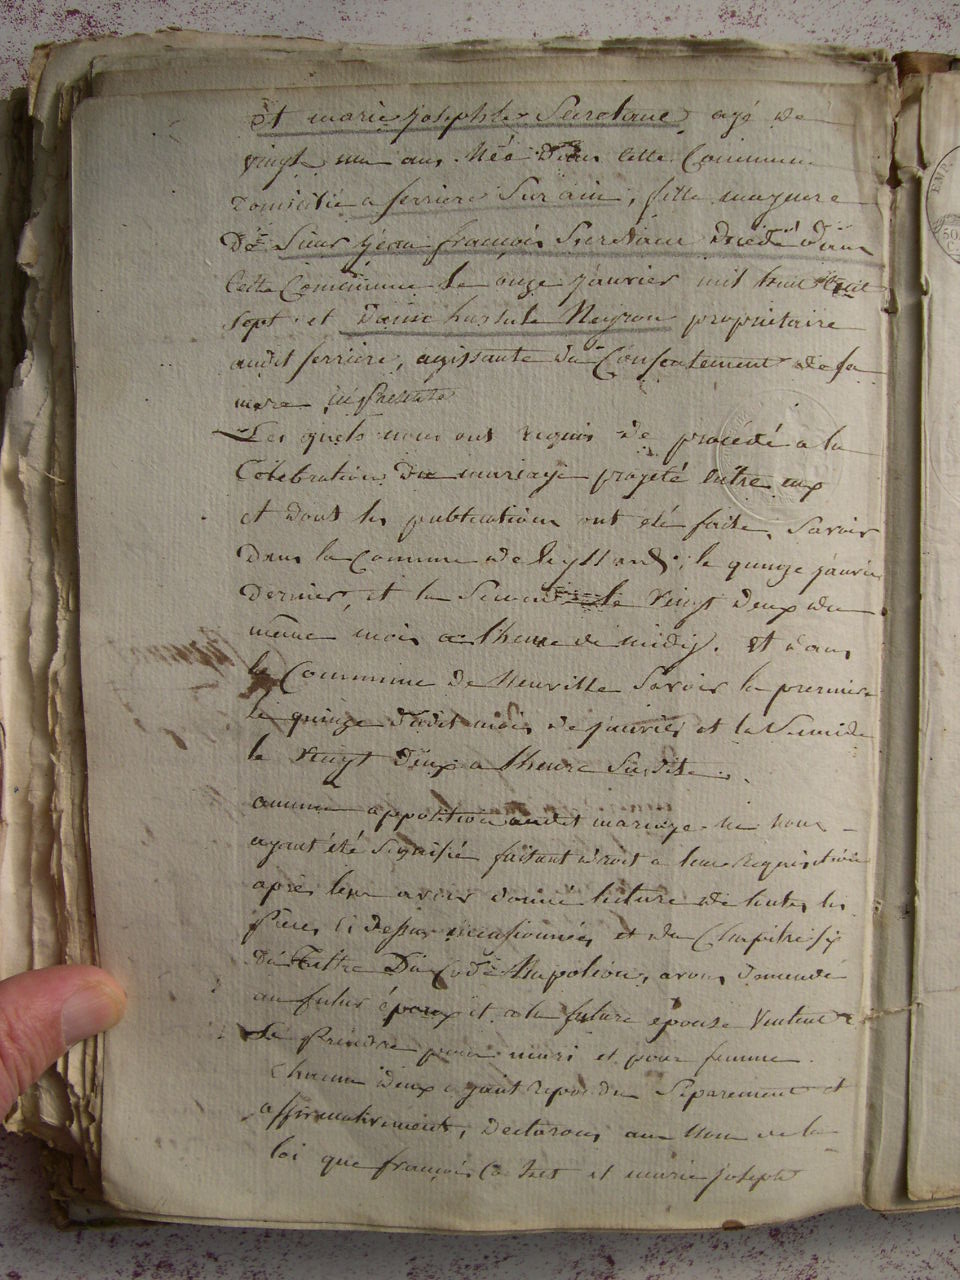 Et marie josephte Secretane, agé de
vingt un ans Née dans cette Commune
Domicilié a serriere Sur ain, fille majeure
De Sieur jean françois Secretane decedé dans
cette Commune le onze janvier mil huit cent
sept et Dame hursule Neyron proprietaire
audit serriere, agissante du Consentement de sa
mere ici presente
Les quels nous ont requis de procédé a la
Célébration du mariage projeté entre eux
et dont les publications ont été faites, Savoir
Dans la Commune de leyssard, le quinze janvier
Dernier, et la Seconde le vingt deux du
même mois a lheure de midy. Et dans
la Commune de Neuville Savoir la premiere
le quinze dudit mois de janvier et la Seconde
le vingt deux a lheure Susdite.
aucune opposition audit mariage ne nous
ayant été Signifié faisant droit a leur requisition
après leur avoir donné lecture de toutes les
pieces ci dessus mentionnées et du Chapitre six
du Tittre Du Code Napoléon, avons demandé
au futur époux et a la future épouse S'ils veulent
Se Prendre pour mari et pour femme.
Chacun deux ayant repondu Séparement et
affirmativement, Declarons au Nom de la
loi que françois et marie joseph